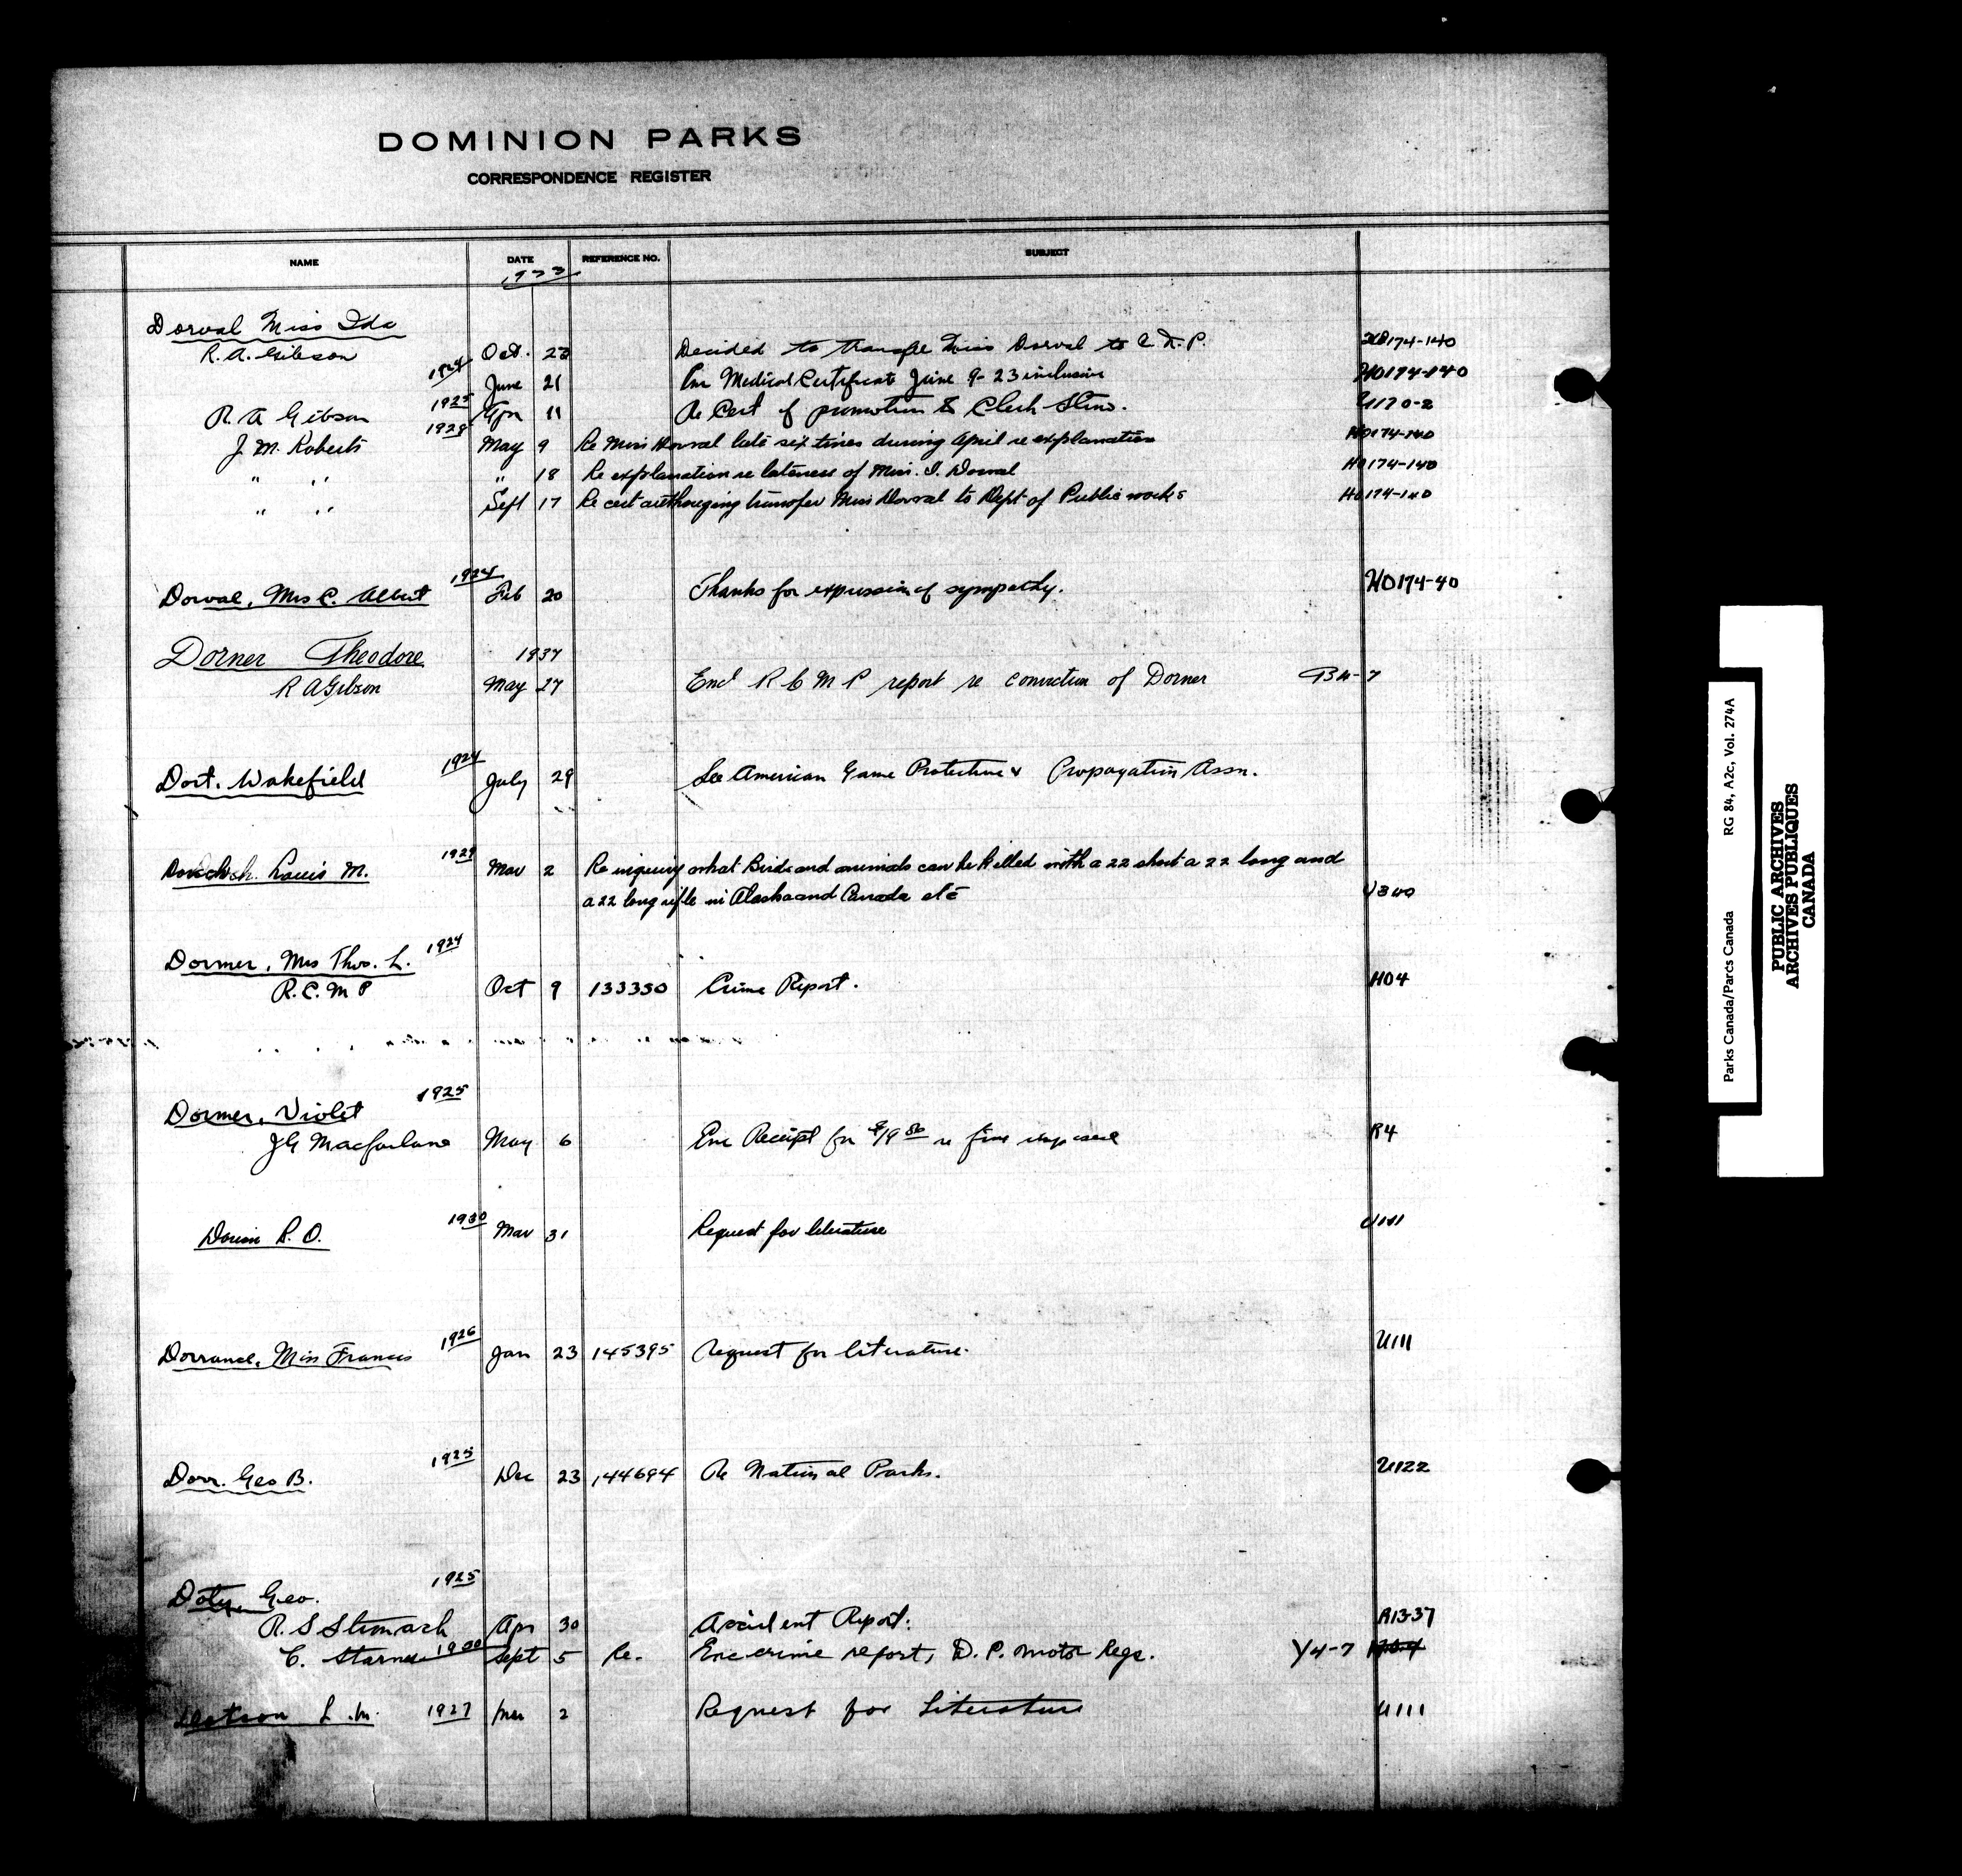 DOMINION PARKS
CORRESPONDENCE REGISTER
NAME DATE REFERENCE NO. SUBJECT
1923
Dorval Miss Ida
R. A. Gibson Oct. 23 Decided to transfer Miss Dorval to C.N.P. HO174-140
1924 June 21 Enc Medical Certificate June 9-23 inclusive HO174-140
R. A Gibson 1925 Apr 11 Re Cert of promotion to Clerk Steno. U170-2
J. M. Roberts 1928 May 9 Re Miss Dorval late six times during April re explanation HO174-140
" " " 18 Re explanation re lateness of Miss. I. Dorval HO174-140
" " Sept 17 Re cert authorizing transfer Miss Dorval to Dept of Public works HO174-140
Dorval, Mrs C. Albert 1924 Feb 20 Thanks for expression of sympathy. HO174-40
Dorner Theodore 1937
R A Gibson May 27 Encl R C M P report re conviction of Dorner B4-7
Dort. Wakefield 1924 July 29 See American Game Protective & Propagation Assn.
Louis M. 1929 Mar 2 Re inquiry what Birds and animals can be killed with a 22 short a 22 long and
a 22 long rifle in Alaska and Canada etc U300
Dormer, Mrs Thos. L. 1924
R. C. M P Oct 9 133350 Crime Report. H04
Dormer, Violet 1925
J G Macfarlane May 6 Enc Receipt for re fine imposed R4
R. O. 1930 Mar 31 Request for literature U111
Dorrance, Miss Francis 1926 Jan 23 145395 Request for literature. U111
Dorr. Geo B. 1925 Dec 23 144694 Re National Parks. U122
Doty, Geo. 1925
R. S Stronach Apr 30 Accident Report. R13-37
C. Starnes 1930 Sept 5 Re. Enc crime report, D. P. motor Regs. Y4-7
Dotson L. M. 1927 Mar 2 Request for Literature U111
Parks Canada/Parcs Canada RG 84, A2c, Vol. 274A
PUBLIC ARCHIVES
ARCHIVES PUBLIQUES
CANADA